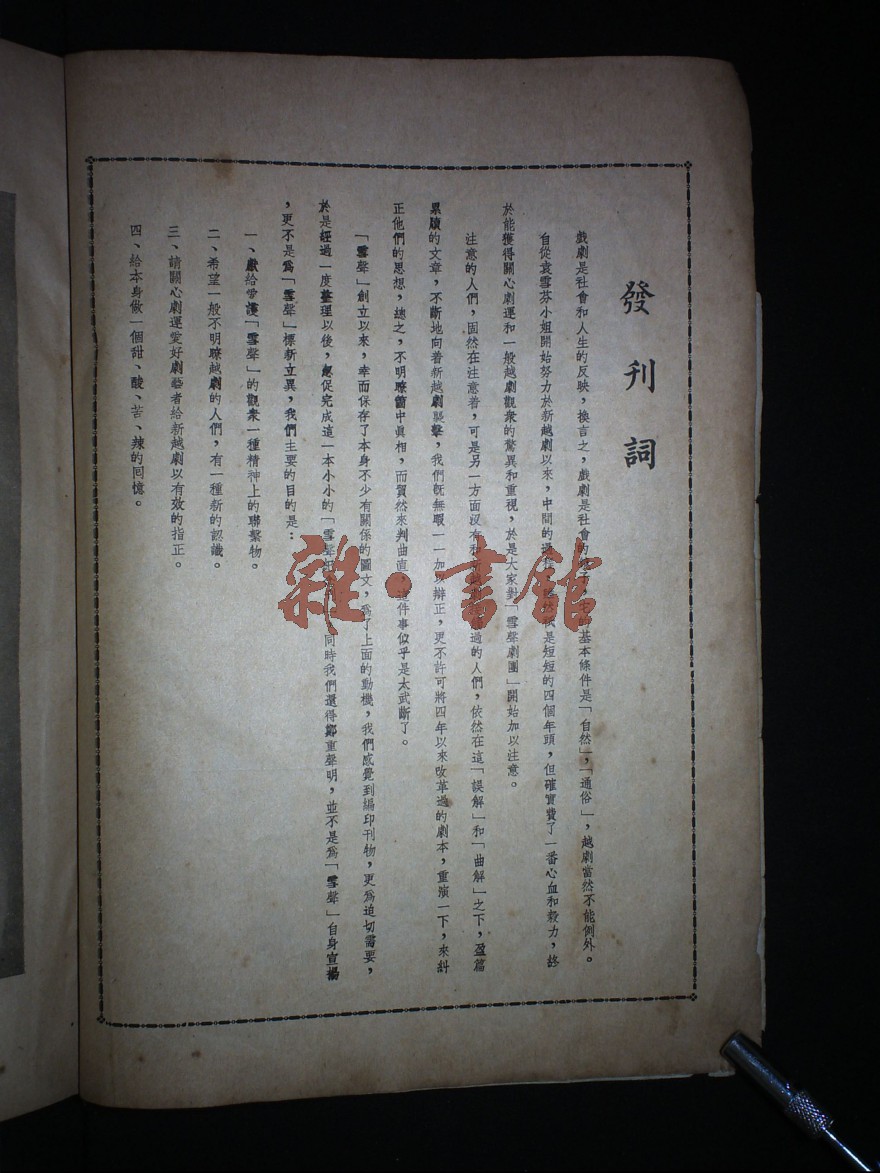 發刊詞
戲劇是社會和人生的反映，換言之，戲劇是社會的基本條件是「自然」，「通俗」，越劇當然不能例外。
自從袁雪芬小姐開始努力於新越劇以來，中間的過程然祇是短短的四個年頭，但確實費了一番心血和毅力，終
於能獲得關心劇運和一般越劇觀衆的驚異和重視，於是大家對「雪聲劇團」開始加以注意。
注意的人們，固然在注意着，可是另一方面沒有過的人們，依然在這「誤解」和「曲解」之下，盈篇
累牘的文章，不斷地向着新越劇襲擊，我們旣無暇一一加以辯正，更不許可將四年以來改革過的劇本，重演一下，來糾
正他們的思想，總之，不明瞭箇中眞相，而貿然來判曲直，這件事似乎是太武斷了。
「雪聲」創立以來，幸而保存了本身不少有關係的圖文，爲了上面的動機，我們感覺到編印刊物，更爲迫切需要，
於是經過一度整理以後，怱促完成這一本小小的「雪聲同時我們還得鄭重聲明，並不是爲「雪聲」自身宣揚
，更不是爲「雪聲」標新立異，我們主要的目的是：
一、獻給愛護「雪聲」的觀衆一種精神上的聯繫物。
二、希望一般不明瞭越劇的人們，有一種新的認識。
三、請關心劇運愛好劇藝者給新越劇以有效的指正。
四、給本身做一個甜、酸、苦、辣的囘憶。
雜·書舘